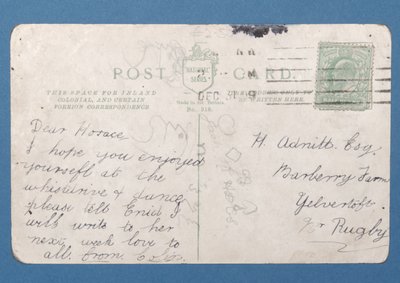 POST CARD
THIS SPACE FOR INLAND
COLONIAL, AND CERTAIN
FOREIGN CORRESPONDENCE
OR WRITTEN HERE.
DEC
Dear Horace
I hope you enjoyed
yourself at the
whistdrive & dance
please tell Enid I
will write to her
next week love to
all. from
H. Adnitt Esq.
Barberry Farm
Yelvertoft
Nr Rugby